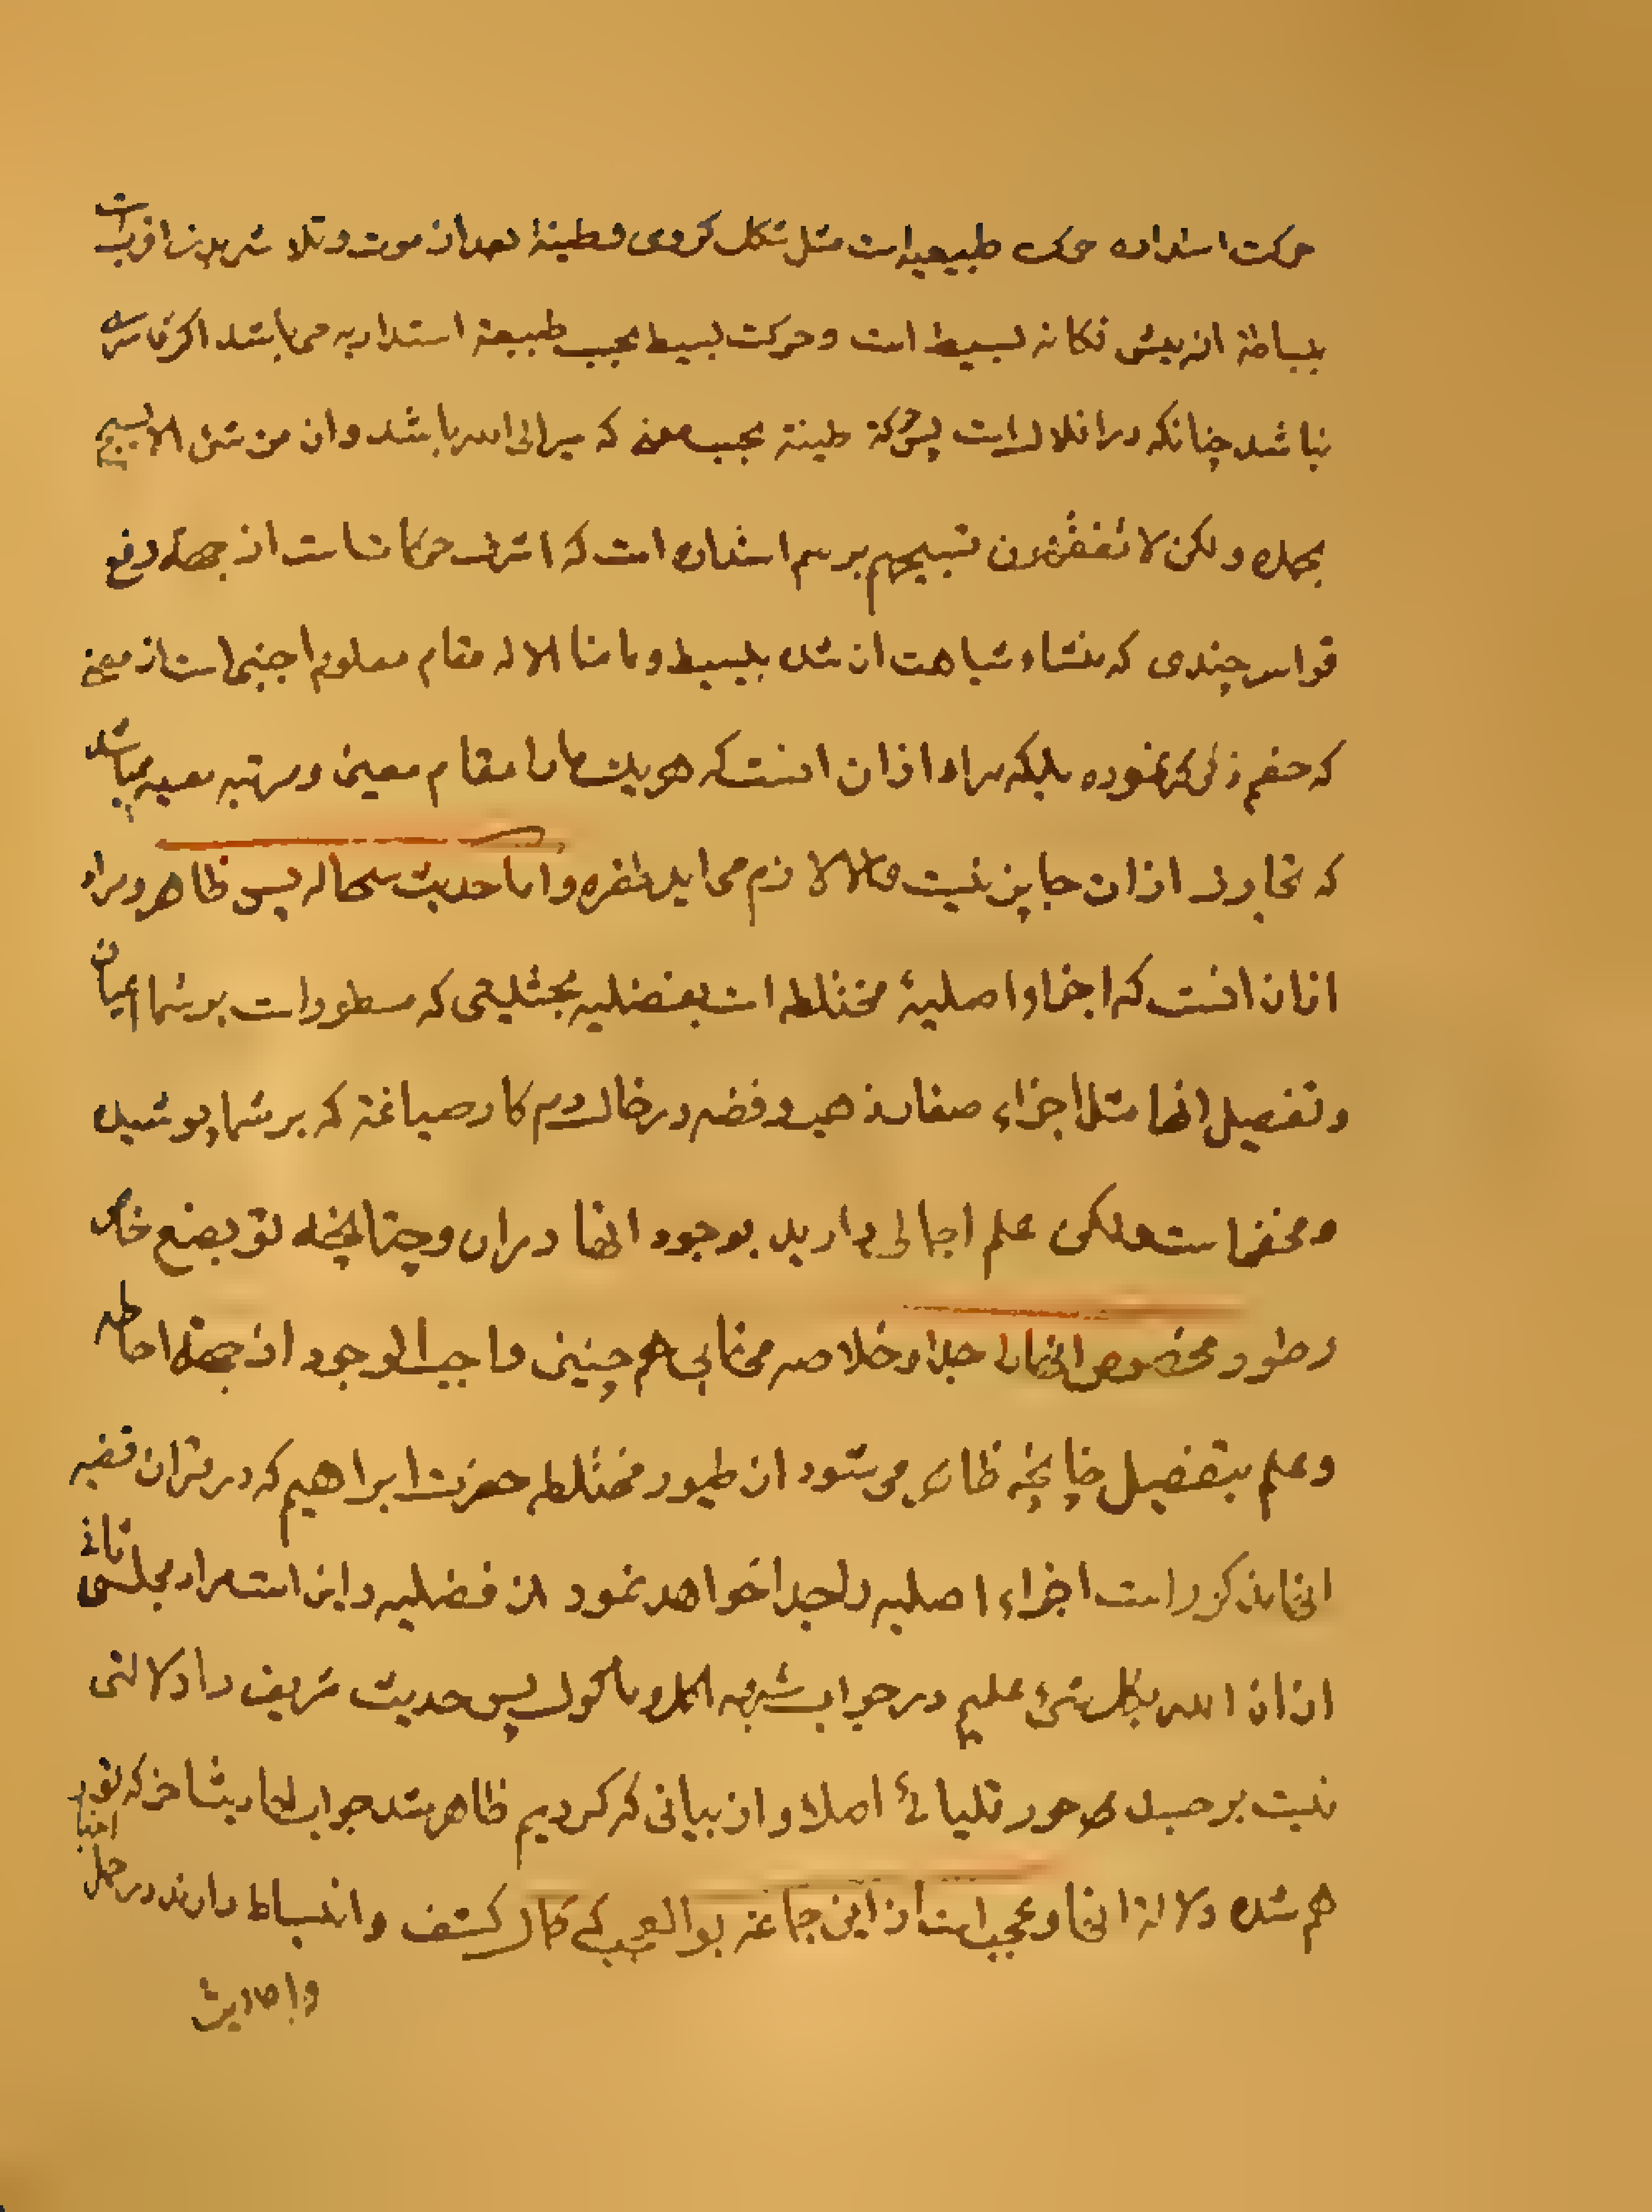 حرکت استداره حرکت طبیعیه است مثل شکل کروی و طینة بعد از موت و تلاشی بدن اقرب است
ببساطة از پیش فکانه بسیط است و حرکت بسیط بحسب طبیعة استداریه می باشد اکر قاسری
نباشد چنانکه در افلاک است پس حرکة طینة بحسب معنی که سیر الی الله باشد و ان من شئ الا یسبح
بحمده و لکن لا تفقهون تسبیحهم برسم استداره است که اشرف حرکاتست از جهة رفع
قواسر چندی که منشاء شباهت ان شده ببسیط و ما منا الا له مقام معلوم اجنبی است از معنی
که خصم ذکر نموده بلکه مراد از ان اینست که هویک را مقام معینی و مرتبه معینه میباشد
که تجاوز از ان جایز نیست والا لازم می اید طفره و اما حدیث سحاله پس ظاهر و مراد
از ان انست که اجزاء اصلیۀ مختلطه است بفضلیه بحیثیتی که مسطور است بر شما اعیان
و تفصیل انها مثل اجزاء صغار ذهب و فضه در خاک دم کار صیاغة که بر شما پوشیده
و مخفی است ولکن علم اجمالی دارید بوجود انها در ان و چنانچه تو بصنع خاک
و طور مخصوص انها را جدا و خلاصه می نمایی هم چنینی واجب الوجود از جهة احاطه
و علم بتفصیل چنانچه ظاهر می شود از طیور مختلطه حضرت ابراهیم که در قران قضیه
انها مذکور است اجزاء اصلیه را جدا خواهد نمود از فضلیه و این است مراد مجلسی ثانی
از ان الله بکل شئ علیم در جواب شبهه اکل و ماکول پس حدیث شریف را دلالتی
نیست بر جسد هورقلیائی اصلا و از بیانی که کردیم ظاهر شد جواب احادیث اخر که
هم شده دلالة انها و عجب است از این جماعة بو العجب که کمال کشف و انبساط دارند در حل
و احادیث